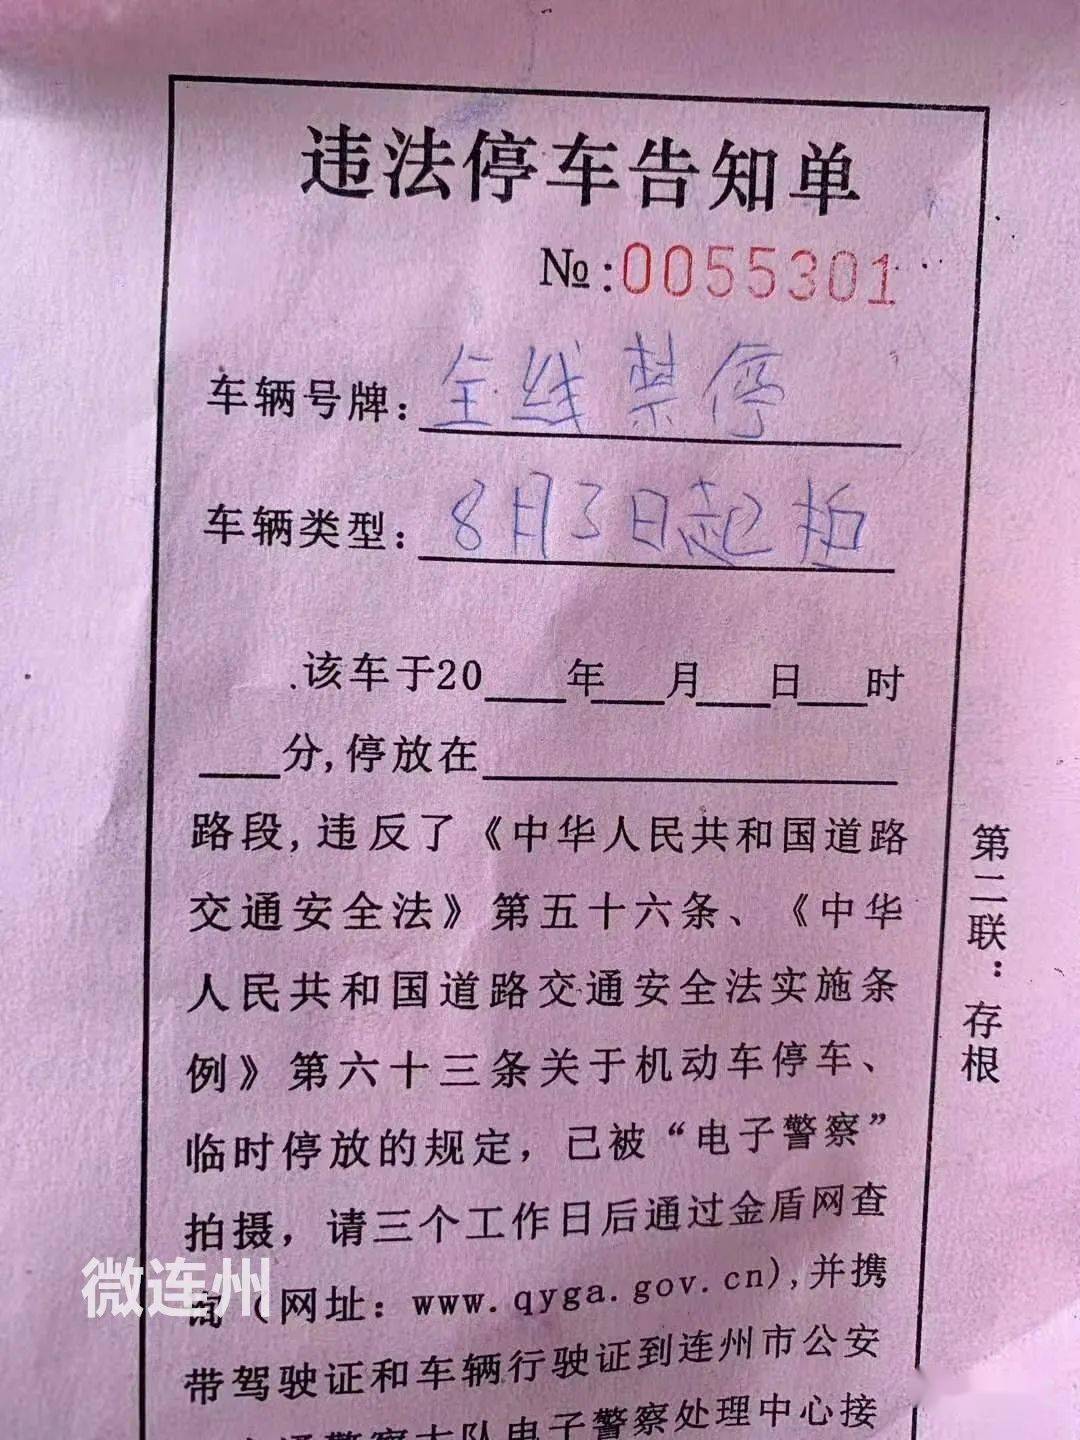 违法停车告知单
№:0055301
车辆号牌:全线禁停
车辆类型:8月3日起拍
该车于20 年 月 日 时
分,停放在
路段,违反了《中华人民共和国道路
交通安全法》第五十六条、《中华
人民共和国道路交通安全法实施条
例》第六十三条关于机动车停车、
临时停放的规定,已被“电子警察”
拍摄,请三个工作日后通过金盾网查
(网址:www.qyga.gov.cn),并携
带驾驶证和车辆行驶证到连州市公安
交通警察大队电子警察处理中心接
第二联:存根
微连州